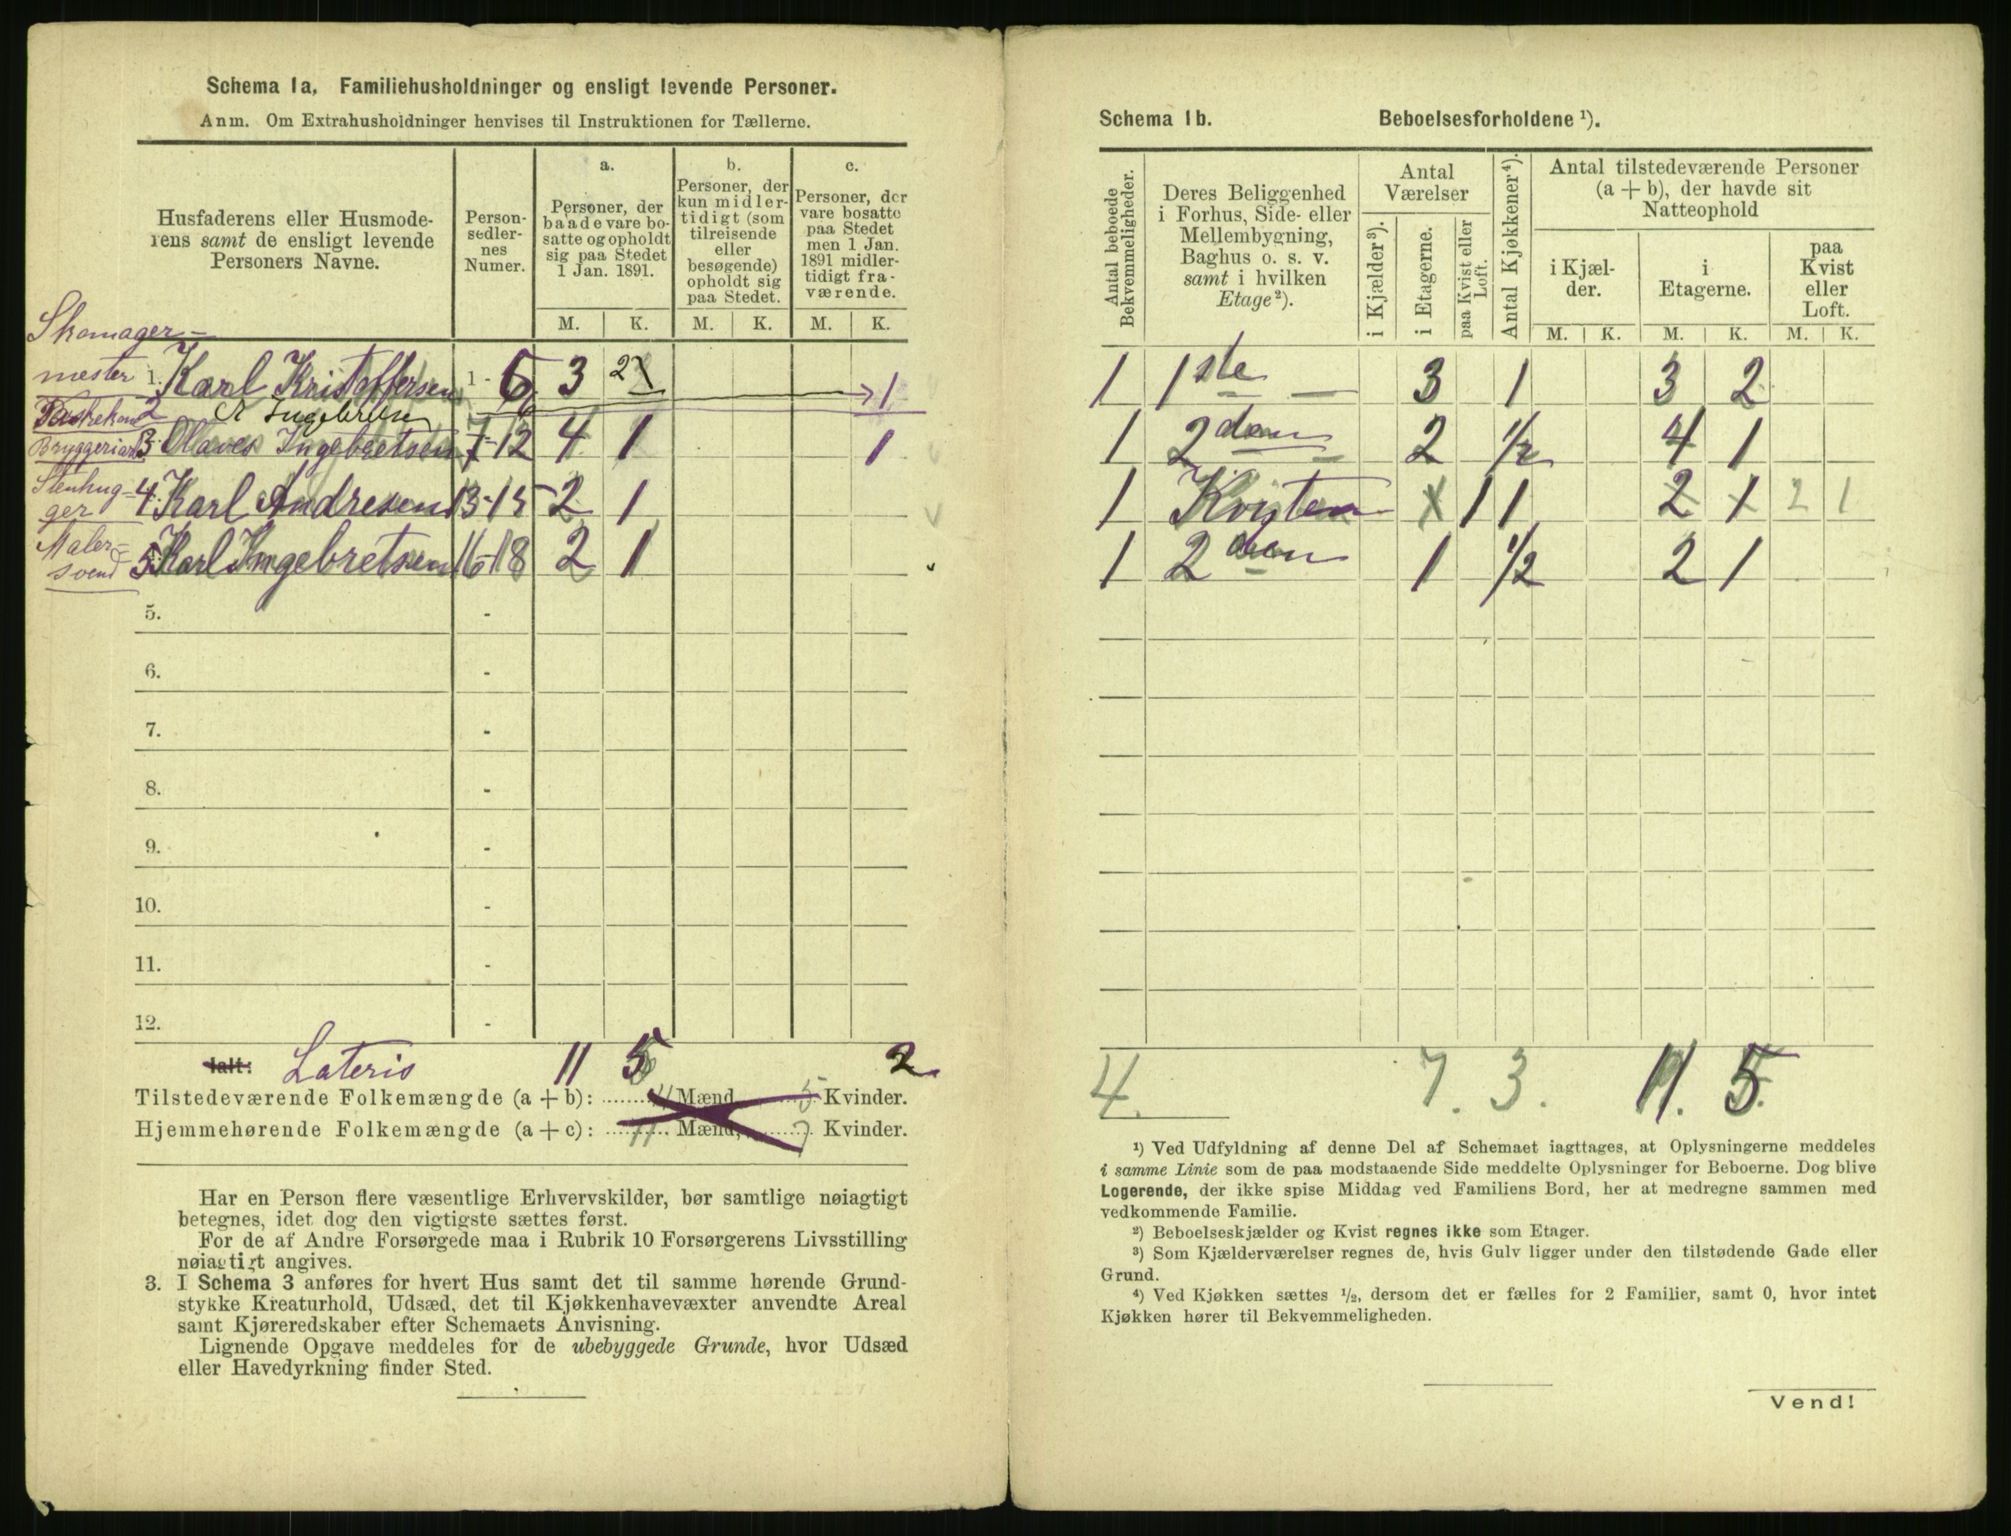 Schema 1a. Familiehusholdninger og ensligt levende Personer.
Anm. Om Extrahusholdninger henvises til Instruktionen for Tællerne.
Husfaderens eller Husmode-
rens samt de ensligt levende
Personers Navne.
Person-
sedler-
nes
Numer.
a.
Personer, der
baade vare bo-
satte og opholdt
sig paa Stedet
1 Jan. 1891.
b.
Personer, der
kun midler-
tidigt (som
tilreisende
eller
besøgende)
opholdt sig
paa Stedet.
c.
Personer, der
vare bosatte
paa Stedet
men 1 Jan.
1891 midler-
tidigt fra-
værende.
M. K. M. K. M. K.
Skomager-
mester 1. Karl Kristoffersen 1 - 6 3 2 1
2 Ingebretsen
Bryggeriarb 3. Olaves Ingebretsen 7-12 4 1 1
Stenhug-
ger 4. Karl Andresen 13-15 2 1
Maler-
svend 5. Karl Ingebretsen 16-18 2 1
5. -
6. -
7. -
8. -
9. -
10. -
11. -
12. -
Ialt: Lateris 11 5 2
Tilstedeværende Folkemængde (a + b): 11 Mænd 5 Kvinder.
Hjemmehørende Folkemængde (a + c): 11 Mænd, 7 Kvinder.
Har en Person flere væsentlige Erhvervskilder, bør samtlige nøiagtigt
betegnes, idet dog den vigtigste sættes først.
For de af Andre Forsørgede maa i Rubrik 10 Forsørgerens Livsstilling
nøiagtigt angives.
3. I Schema 3 anføres for hvert Hus samt det til samme hørende Grund-
stykke Kreaturhold, Udsæd, det til Kjøkkenhavevæxter anvendte Areal
samt Kjøreredskaber efter Schemaets Anvisning.
Lignende Opgave meddeles for de ubebyggede Grunde, hvor Udsæd
eller Havedyrkning finder Sted.
Schema 1b. Beboelsesforholdene ¹).
Antal beboede
Bekvemmeligheder.
Deres Beliggenhed
i Forhus, Side- eller
Mellembygning,
Baghus o. s. v.
samt i hvilken
Etage ²).
Antal
Værelser
i Kjælder ³).
i Etagerne.
paa Kvist eller
Loft.
Antal Kjøkkener ⁴).
Antal tilstedeværende Personer
(a + b), der havde sit
Natteophold
i Kjæl-
der.
i
Etagerne.
paa
Kvist
eller
Loft.
M. K. M. K. M. K.
1 1ste — 3 1 3 2
1 2den 2 1/2 4 1
1 Kvisten 1 1 1 2 1 2 1
1 2den 1 1/2 2 1
4. 7. 3. 11. 5.
¹) Ved Udfyldning af denne Del af Schemaet iagttages, at Oplysningerne meddeles
i samme Linie som de paa modstaaende Side meddelte Oplysninger for Beboerne. Dog blive
Logerende, der ikke spise Middag ved Familiens Bord, her at medregne sammen med
vedkommende Familie.
²) Beboelseskjælder og Kvist regnes ikke som Etager.
³) Som Kjælderværelser regnes de, hvis Gulv ligger under den tilstødende Gade eller
Grund.
⁴) Ved Kjøkken sættes ¹/₂, dersom det er fælles for 2 Familier, samt 0, hvor intet
Kjøkken hører til Bekvemmeligheden.
Vend!